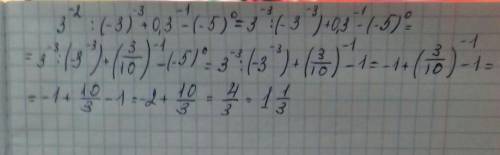 3⁻²:(-3)⁻³+0,3⁻¹-(-5)⁰=3⁻³:(-3⁻³)+0,3⁻¹-(-5)⁰=
=3⁻³:(-3⁻³)+(3/10)⁻¹-(-5)⁰=3⁻³:(-3⁻³)+(3/10)⁻¹-1=-1+(3/10)⁻¹-1=
=-1+10/3-1=-2+10/3=4/3=1 1/3